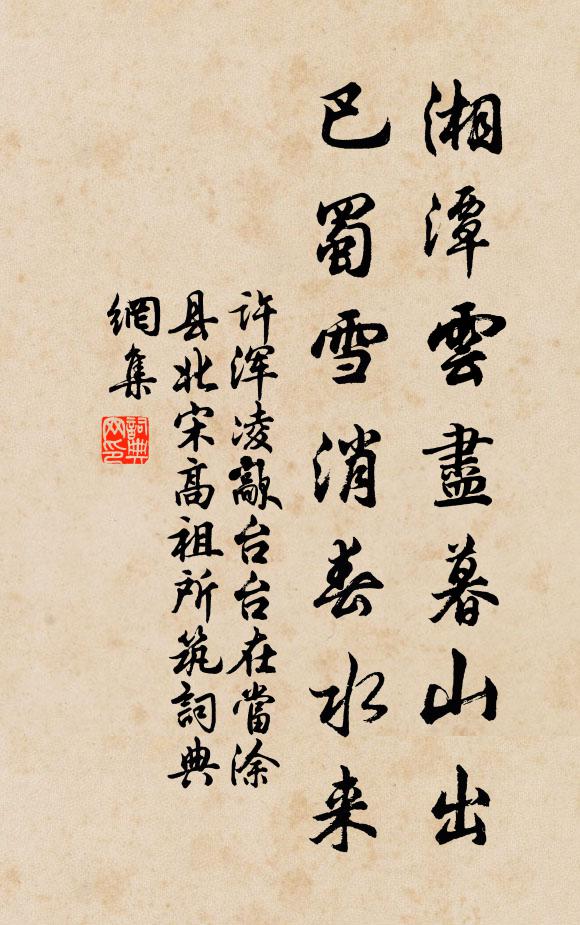 湘潭雲盡暮山出
巴蜀雪消春水来
许浑凌歊台台在當涂
县北宋高祖所筑詞典
網集
詞典
网印